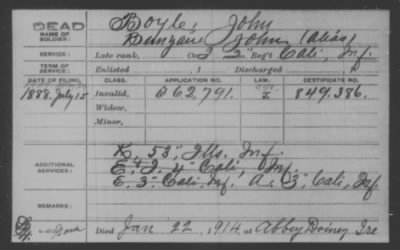 DEAD
NAME OF SOLDIER:
Boyle, John
Dunzane John (alias)
SERVICE:
Late rank, Co. 3" Reg't Cali, Inf.
TERM OF SERVICE:
Enlisted , 1 Discharged , 1
DATE OF FILING. CLASS. APPLICATION NO. LAW. CERTIFICATE NO.
1888. July 15 Invalid, 662,791. 849.386.
Widow,
Minor,
ADDITIONAL SERVICES:
K, 53" Ills. Inf.
4" Cali, Inf.
E. 3" Cali, Inf. A. 3" Cali, Inf.
REMARKS:
Died Jan 22, 1914, at Abbey Ire